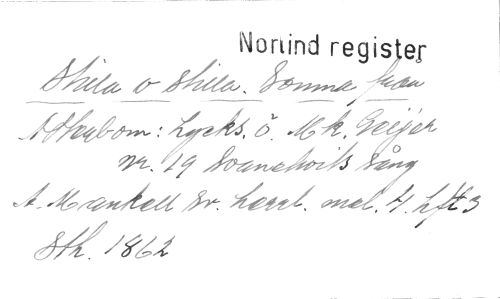 Norlind register
Stilla o stilla. Somna från
Atterbom: Lycks. ö. Mk. Geijer
nr. 19 Svanehvits Sång
A. Mankell Sv. haral. mel. 4. hft 3
Sth. 1862